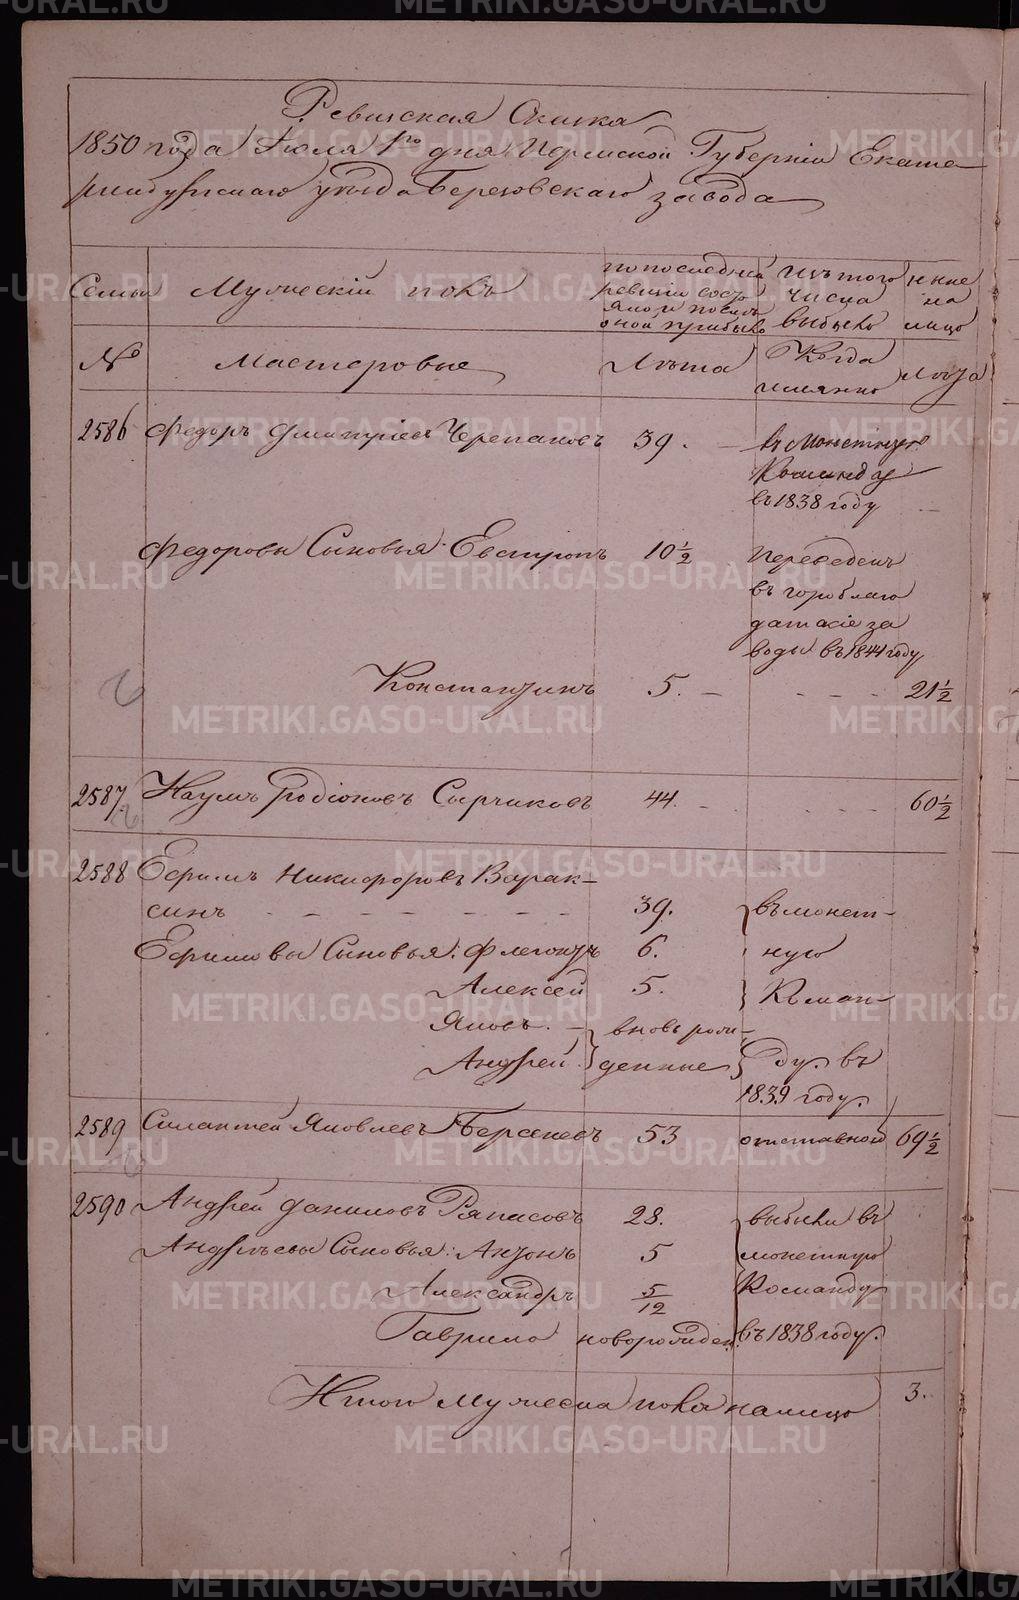 Ревизская Сказка
1850 года Июля 1го дня Пермской Губерніи Екате-
ринбургскаго уѣзда Березовскаго завода
Семьи
Мужескій полъ
по последней ревизіи состояло и после оной прибыло
Изъ того числа выбыло
Ныне на лицо
№
Мастеровые
Лѣта
Когда имянно
Лѣта
2586 Федоръ Дмитріевъ Черепановъ 39. въ монетную
Команду
въ 1838 году
Федоровы Сыновья: Евстропъ 10 1/2 переведенъ
въ гороблаго
датскіе за
воды въ 1844 году
Константинъ 5. 21 1/2
2587 Наумъ Родіоновъ Сырчиковъ 44. 60 1/2
2588 Ефимъ Никифоровъ Варак-
синъ 39. въ монет-
Ефимовы Сыновья: Флегонтъ 6. ную
Алексѣй 5. Коман-
Яковъ. вновь рож-
Андрей денные ду въ
1839 году.
2589 Силантей Яковлевъ Берсеневъ 53 отставной 69 1/2
2590 Андрей Даниловъ Ряпасовъ 28. выбыли въ
Андреевы Сыновья: Антонъ 5 монетную
Александръ 5/12 Команду
Гаврило новорожден. въ 1838 году.
Итого мужеска пола налицо 3.
METRIKI.GASO-URAL.RU